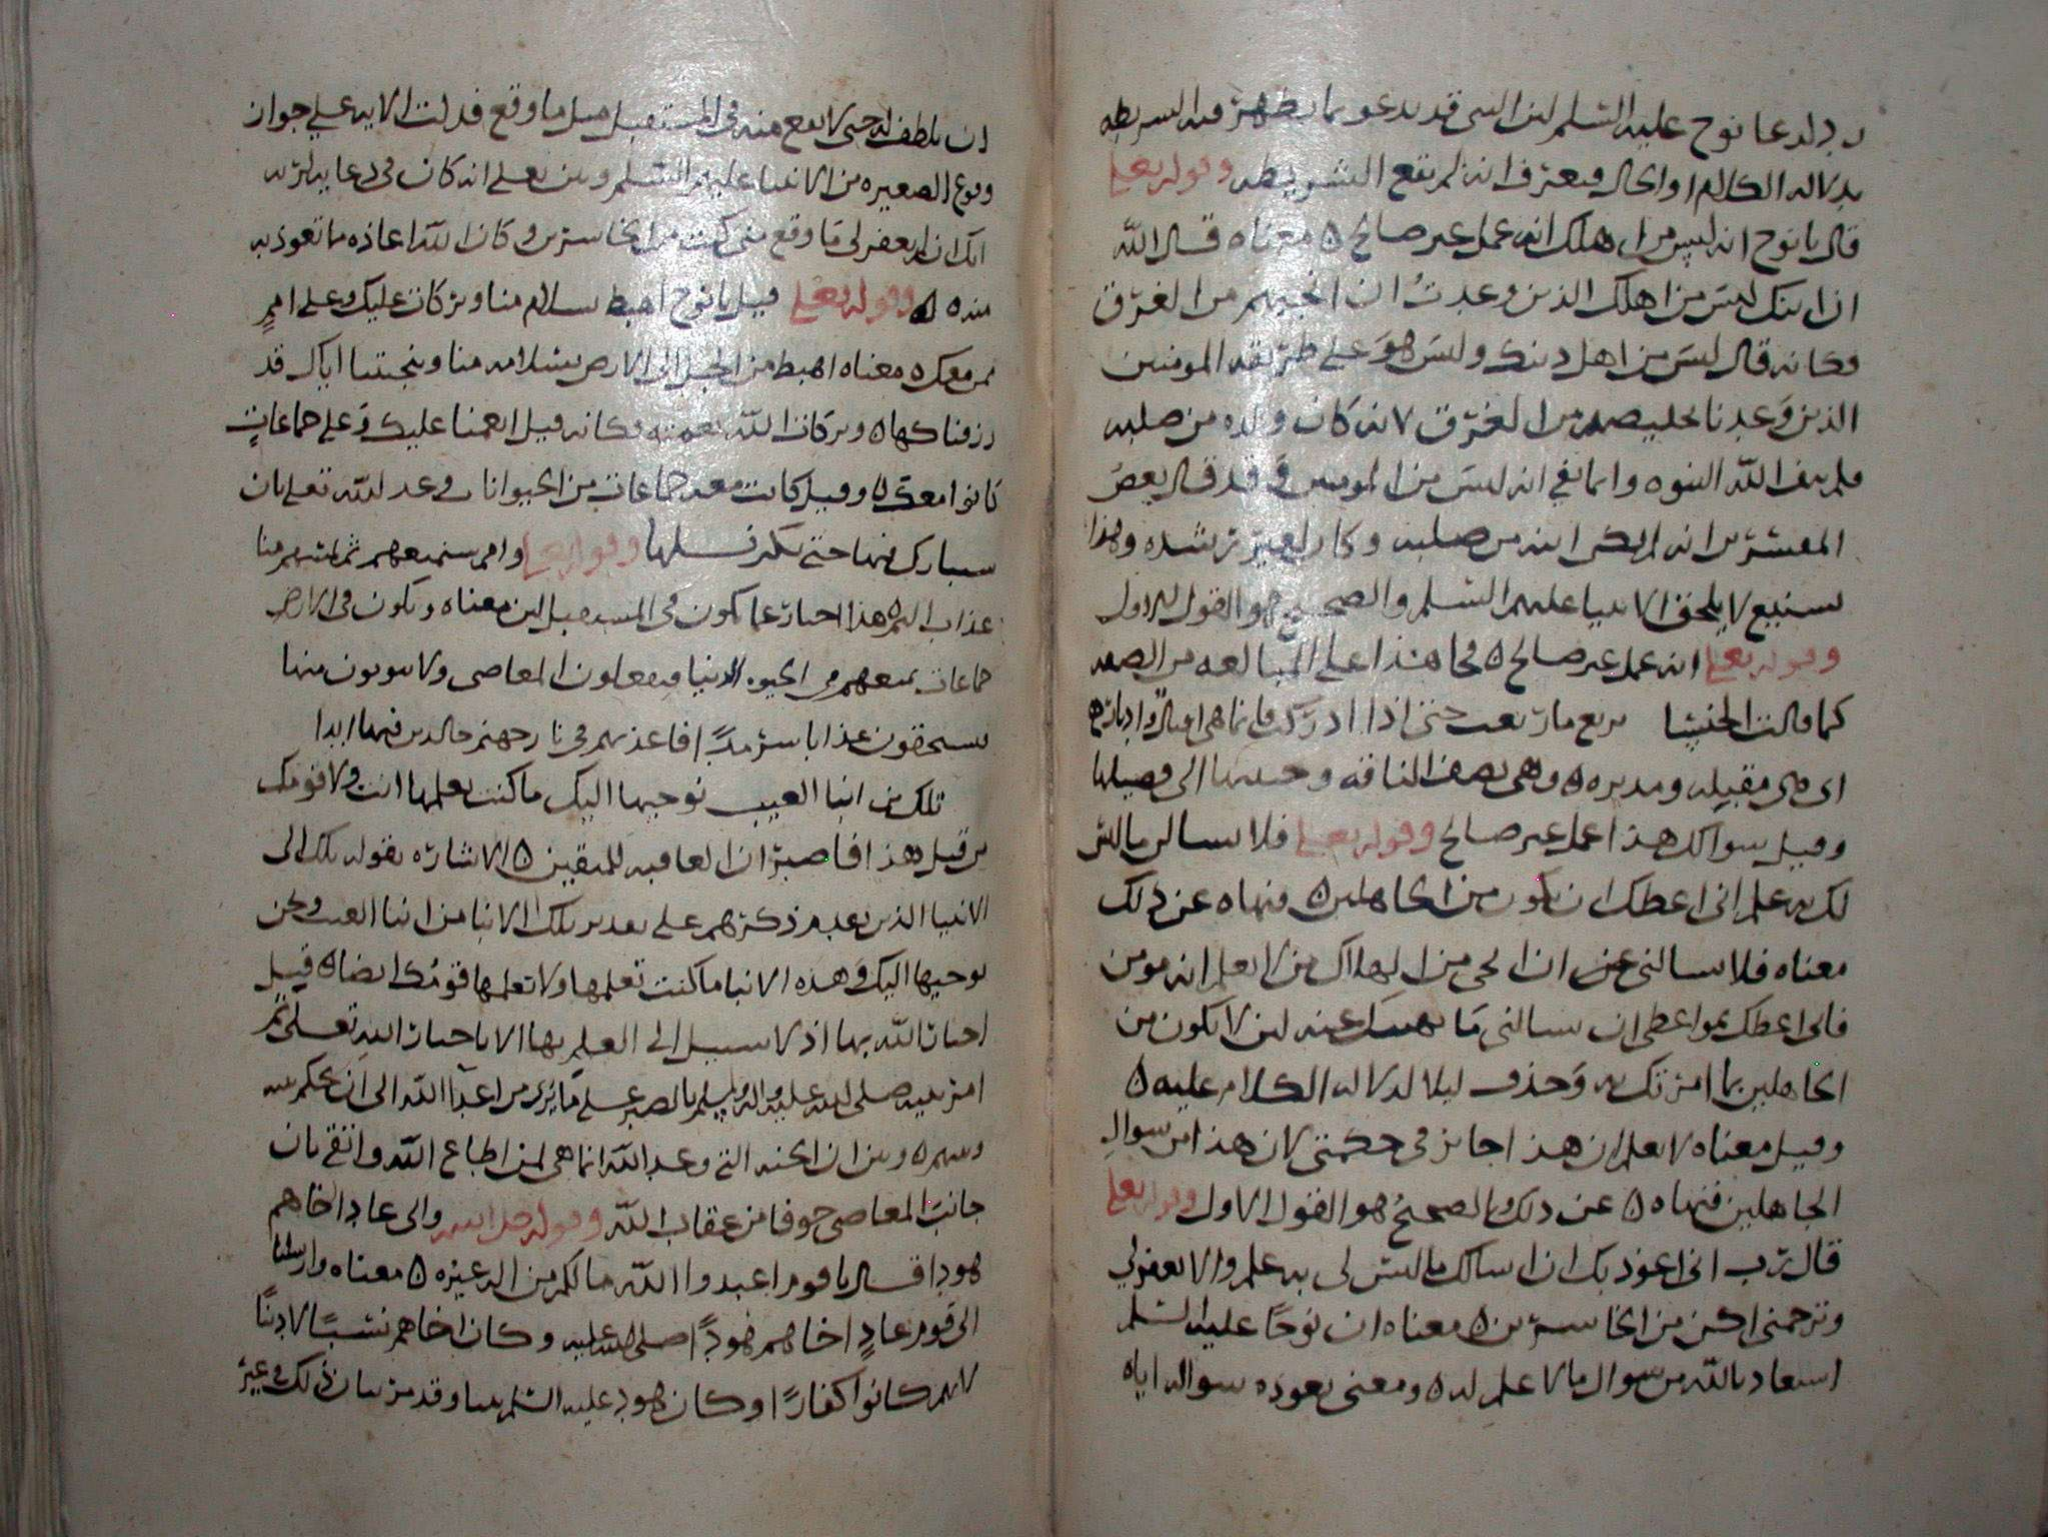 بذلك دعا نوح عليه السلم لان النبي قد يدعو بما يظهر فيه الشريطه
بدلاله الكلام او الحال فيعرف انه لم يقع الشريطه وقوله تعلى
قال يانوح انه ليس من اهلك انه عمل غير صالح ٥ معناه قال الله
ان ابنك ليس من اهلك الذين وعدتُ ان انجيهم من الغرق
وكانه قال ليس من اهل دينك وليس هو على طريقه المومنين
الذين وعدنا تخليصهم من الغرق لانه كان ولده من صلبه
فلم ينف الله البنوه وانما نفى انه ليس من المومنين وقد قال بعض
المفسرين انه لم يكن ابنه من صلبه وكان لغير رشده وهذا
شنيع لا يلحق الانبيا عليهم السلم والصحيح هو القول الاول
وقوله تعلى انه عمل غير صالح ٥ فجا هذا على المبالغه من الصفه
كما قالت الخنسا ترتع ما رتعت حتى اذا ادركت فانما هي اقبال وادبار
اى هى مقبله ومدبره ٥ وهى تصف الناقه وحنينها الى فصيلها
وقيل سوالك هذا عمل غير صالح وقوله تعلى فلا تسالن ما ليس
لك به علم انى اعظك ان تكون من الجاهلين ٥ فنهاه عن ذلك
معناه فلا تسالنى عن ان انجى من الهلاك من لا تعلم انه مومن
فانى اعظك بمواعظى ان تسالنى ما نهيتك عنه لان لا تكون من
الجاهلين بما امرتك به وحذف ليلا لدلاله الكلام عليه ٥
وقيل معناه لا تعلم ان هذا جايز فى حكمتى لان هذا من سوال
الجاهلين فنهاه ٥ عن ذلك والصحيح هو القول الاول وقوله تعلى
قال رب انى اعوذ بك ان اسالك ما ليس لى به علم والا تغفر لي
وترحمنى اكن من الخاسرين ٥ معناه ان نوحًا عليه السلم
استعاذ بالله من سوال ما لا علم له ٥ ومعنى تعوذه سواله اياه
ان يلطف له حتى لا يقع منه فى المستقبل مثل ما وقع فدلت الايه على جواز
وقوع الصغيره من الانبيا عليهم السلم وبين تعلى انه كان فى دعايه لربه
انك ان لم تغفر لى ما وقع منى كنت من الخاسرين وكان الله اعاذه مما تعوذ به
منه ٥ وقوله تعلى قيل يانوح اهبط بسلام منا وبركات عليك وعلى اممٍ
ممن معك ٥ معناه اهبط من الجبل الى الارض بسلامه منا وبنجيتنا اياك قد
رزقناكها ٥ وبركات الله نعمته فكانه قيل انعمنا عليك وعلى جماعاتٍ
كانوا معك ٥ وقيل كانت معه جماعات من الحيوانات وعد الله تعلى بان
سيبارك فيها حتى يكثر نسلها وقوله تعلى وامم سنمتعهم ثم يمسهم منا
عذاب اليم ٥ هذا اخبار عما يكون فى المستقبل لان معناه ويكون فى الارض
جماعات نمتعهم فى الحيوه الدنيا فيفعلون المعاصى ولا يتوبون منها
فيستحقون عذابا سرمدًا فاعذبهم فى نار جهنم خالدين فيها ابدا
تلك من انبا الغيب نوحيها اليك ما كنت تعلمها انت ولا قومك
من قبل هذا فاصبر ان العاقبه للمتقين ٥ الاشاره بقوله تلك الى
الانبيا الذين تقدم ذكرهم على تقدير تلك الانبا من انبا الغيب ونحن
نوحيها اليك وهذه الانبا ما كنت تعلمها ولا تعلمها قومُك ايضا ٥ قبل
اخبار الله بها اذ لا سبيل الى العلم بها الا باخبار الله تعلى ثم
امر نبيه صلى الله عليه واله وسلم بالصبر على ما يرى من اعدا الله الى ان يحكم بينه
وبينهم ٥ وبين ان الجنه التى وعد الله انما هى لمن اطاع الله واتقى بان
جانب المعاصى خوفا من عقاب الله وقوله جل اسمه والى عاد اخاهم
هودا قال ياقوم اعبدوا الله مالكم من اله غيره ٥ معناه وارسلنا
الى قوم عادٍ اخاهم هودًا صلى الله عليه وكان اخاهم نسبًا لا دينًا
لانهم كانوا كفارًا وكان هود عليه السلم نبيا وقد مر بيان ذلك فى غير